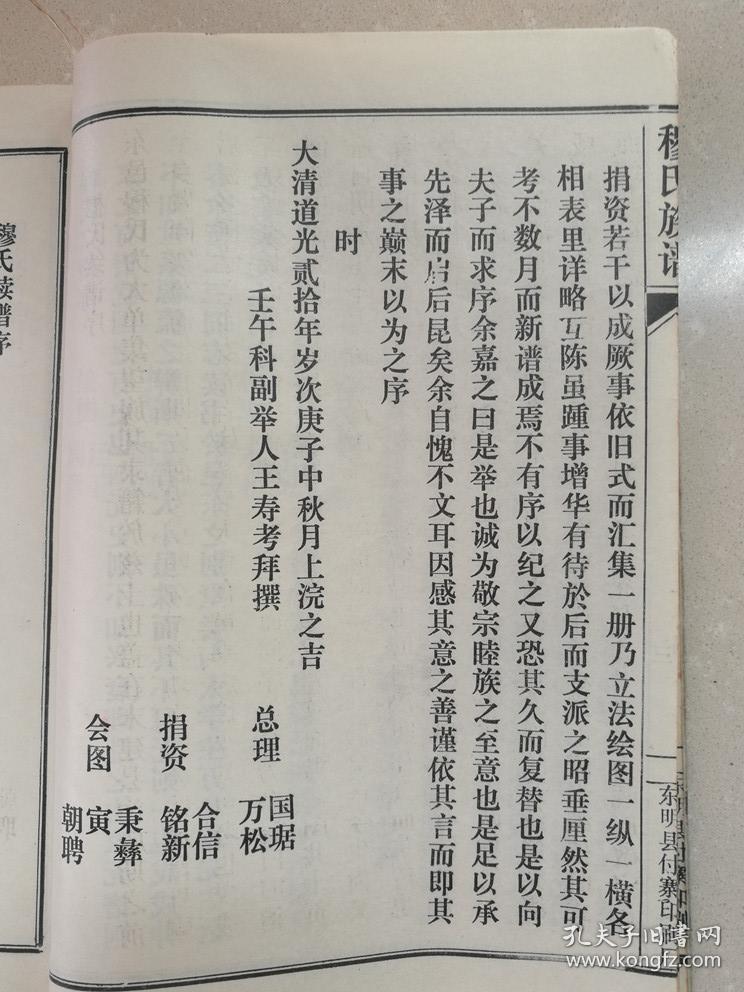 穆氏族谱
捐资若干以成厥事依旧式而汇集一册乃立法绘图一纵一横各
相表里详略互陈虽踵事增华有待於后而支派之昭垂厘然其可
考不数月而新谱成焉不有序以纪之又恐其久而复替也是以向
夫子而求序余嘉之曰是举也诚为敬宗睦族之至意也是足以承
先泽而启后昆矣余自愧不文耳因感其意之善谨依其言而即其
事之巅末以为之序
时
大清道光贰拾年岁次庚子中秋月上浣之吉
壬午科副举人王寿考拜撰
总理 国琚
万松
捐资 合信
铭新
会图 秉彝
寅
朝聘
东明县付寨印刷
穆氏续谱序
孔夫子旧书网
kongfz.com